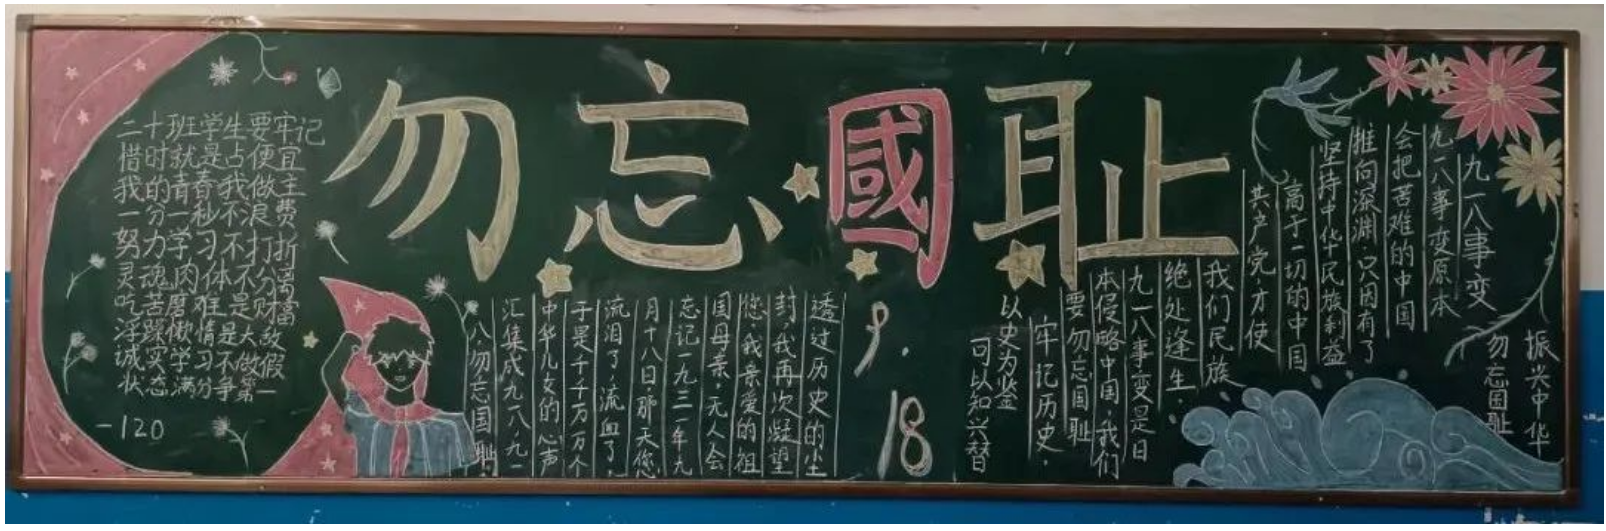 勿忘國耻
二十班学生要牢记
惜时就是占便宜
我的青春我做主
一分一秒不浪费
努力学习不打折
灵魂肉体不分离
吃苦磨难是财富
浮躁懒惰是大敌
诚实学习不做假
状态满分争第一
-120
振兴中华
勿忘国耻
九一八事变
九一八事变原本
会把苦难的中国
推向深渊,只因有了
坚持中华民族利益
高于一切的中国
共产党,才使
我们民族
绝处逢生.
九一八事变是日
本侵略中国,我们
要勿忘国耻
牢记历史.
以史为鉴
可以知兴替
9.
18
透过历史的尘
封,我再次凝望
您,我亲爱的祖
国母亲,无人会
忘记一九三一年九
月十八日那天,您
流泪了,流血了,
于是千千万万个
中华儿女的心声
汇集成九一八,九一
八,勿忘国耻.